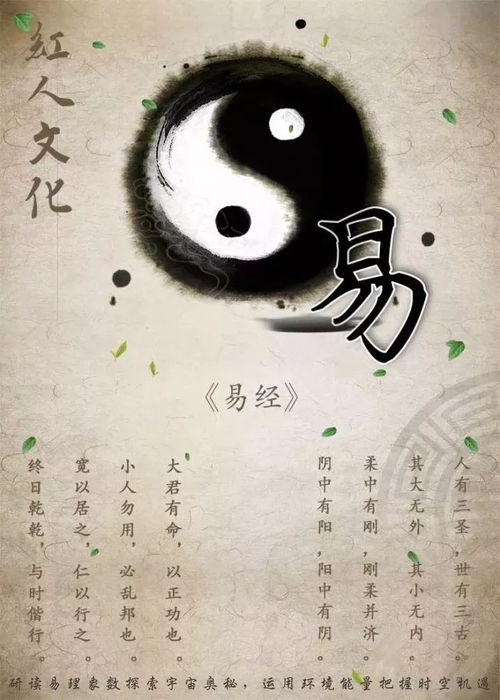 紅人文化
易
《易经》
人有三圣,世有三古。
其大无外 其小无内。
柔中有刚,刚柔并济。
阴中有阳,阳中有阴。
大君有命,以正功也。
小人勿用,必乱邦也。
宽以居之,仁以行之。
终日乾乾,与时偕行。
研读易理象数探索宇宙奥秘,运用环境能量把握时空机遇